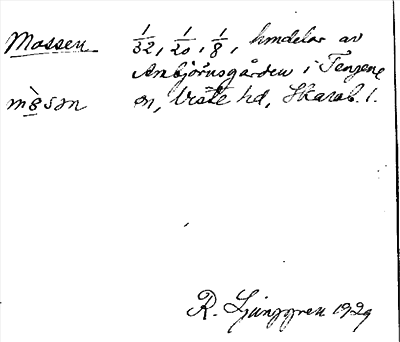 Mossen 1/32, 1/20, 1/8, hmdelar av
Anbjörnsgården i Tengene
mɵ̀sən sn, Viste hd, Skarab. l.
R. Ljunggren 1929